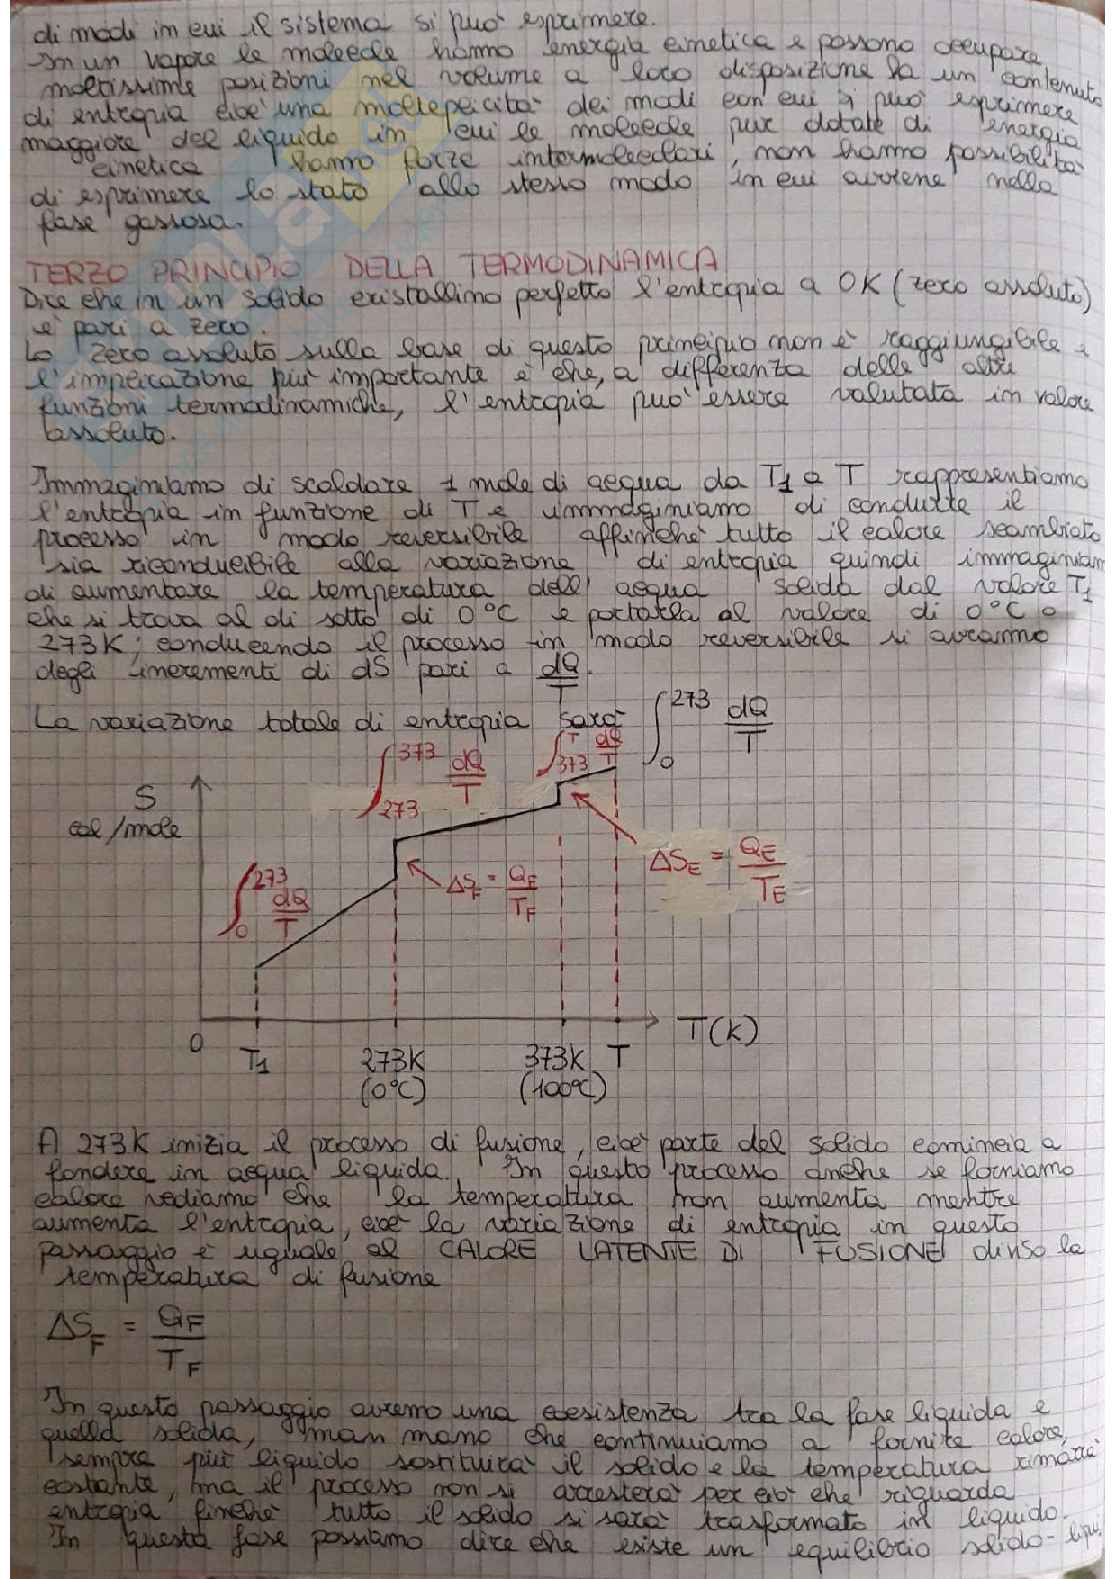 di modi in cui il sistema si può esprimere.
In un vapore le molecole hanno energia cinetica e possono occupare
moltissime posizioni nel volume a loro disposizione ha un contenuto
di entropia cioè una molteplicità dei modi con cui si può esprimere
maggiore del liquido in cui le molecole pur dotate di energia
cinetica hanno forze intermolecolari, non hanno possibilità
di esprimere lo stato allo stesso modo in cui avviene nella
fase gassosa.
TERZO PRINCIPIO DELLA TERMODINAMICA
Dice che in un solido cristallino perfetto l'entropia a 0K (zero assoluto)
è pari a zero.
Lo zero assoluto sulla base di questo principio non è raggiungibile e
l'implicazione più importante è che, a differenza delle altre
funzioni termodinamiche, l'entropia può essere valutata in valore
assoluto.
Immaginiamo di scaldare 1 mole di acqua da T1 a T rappresentiamo
l'entropia in funzione di T e immaginiamo di condurre il
processo in modo reversibile affinché tutto il calore scambiato
sia riconducibile alla variazione di entropia quindi immaginiam
di aumentare la temperatura dell'acqua solida dal valore T1
che si trova al di sotto di 0°C e portarla al valore di 0°C o
273K; conducendo il processo in modo reversibile si avranno
degli incrementi di dS pari a dQ/T.
La variazione totale di entropia sarà ∫₀²⁷³ dQ/T
∫₂₇₃³⁷³ dQ/T
∫₃₇₃ᵀ dQ/T
S
cal/mole
∫₀²⁷³ dQ/T
ΔS_F = Q_F/T_F
ΔS_E = Q_E/T_E
0
T1
273K
(0°C)
373K
(100°C)
T
T(K)
A 273K inizia il processo di fusione, cioè parte del solido comincia a
fondere in acqua liquida. In questo processo anche se forniamo
calore vediamo che la temperatura non aumenta mentre
aumenta l'entropia, cioè la variazione di entropia in questo
passaggio è uguale al CALORE LATENTE DI FUSIONE diviso la
temperatura di fusione
ΔS_F = Q_F/T_F
In questo passaggio avremo una coesistenza tra la fase liquida e
quella solida, man mano che continuiamo a fornire calore,
sempre più liquido sostituirà il solido e la temperatura rimarrà
costante, ma il processo non si arresterà per ciò che riguarda
entropia finché tutto il solido si sarà trasformato in liquido.
In questa fase possiamo dire che esiste un equilibrio solido-liqui